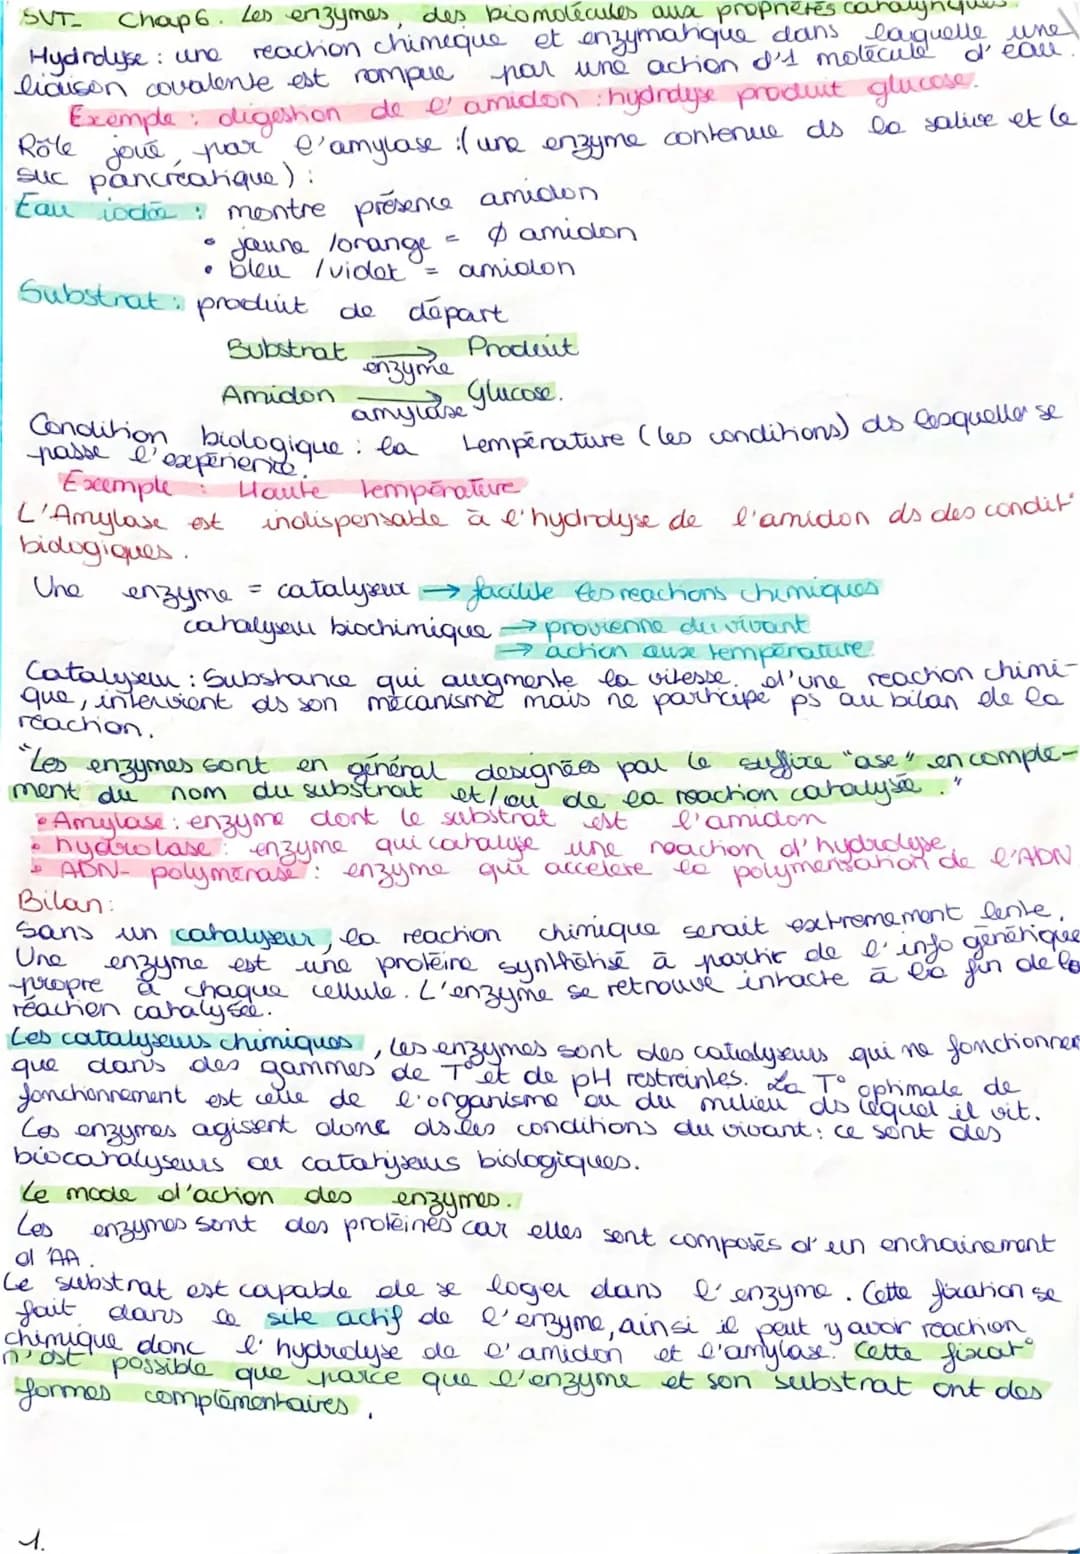 SVT_ Chap6. Les enzymes, des biomolécules aux propriétés catalytiques.
Hydrolyse : une reaction chimique et enzymatique dans laquelle une
liaison covalente est rompue par une action d'1 molécule d'eau.
Exemple : digestion de l'amidon : hydrolyse produit glucose.
Rôle joué par l'amylase :( une enzyme contenue ds la salive et le
suc pancréatique) :
Eau iodée : montre présence amidon
• jaune /orange = ∅ amidon
• bleu /violet = amidon
Substrat : produit de départ
Substrat → Produit
enzyme
Amidon → Glucose.
amylase
Condition biologique : la température (les conditions) ds lesquelles se
passe l'expérience.
Exemple : Haute température
L'Amylase est indispensable à l'hydrolyse de l'amidon ds des condit°
biologiques.
Une enzyme = catalyseur → facilite les reactions chimiques
catalyseur biochimique → provienne du vivant
→ action aux température.
Catalyseur : Substance qui augmente la vitesse d'une reaction chimi-
que, intervient ds son mécanisme mais ne participe ps au bilan de la
réaction.
"Les enzymes sont en général designées par le suffixe "ase" en complé-
ment du nom du substrat et/ou de la reaction catalysée."
• Amylase : enzyme dont le substrat est l'amidon
• hydrolase : enzyme qui catalyse une reaction d'hydrolyse
• ADN- polymérase : enzyme qui accelere la polymérisation de l'ADN
Bilan :
Sans un catalyseur, la réaction chimique serait extremement lente.
Une enzyme est une protéine synthétisé à partir de l'info génétique
propre à chaque cellule. L'enzyme se retrouve intacte à la fin de la
réaction catalysée.
Les catalyseurs chimiques, les enzymes sont des catalyseurs qui ne fonctionnent
que dans des gammes de T° et de pH restreintes. La T° optimale de
fonctionnement est celle de l'organisme ou du milieu ds lequel il vit.
Les enzymes agissent donc ds les conditions du vivant : ce sont des
biocatalyseurs ou catalyseurs biologiques.
Le mode d'action des enzymes.
Les enzymes sont des protéines car elles sont composés d'un enchainement
d'AA.
Le substrat est capable de se loger dans l'enzyme. Cette fixation se
fait dans le site actif de l'enzyme, ainsi il peut y avoir réaction
chimique donc l'hydrolyse de l'amidon et l'amylase. Cette fixat°
n'est possible que parce que l'enzyme et son substrat ont des
formes complémentaires.
1.